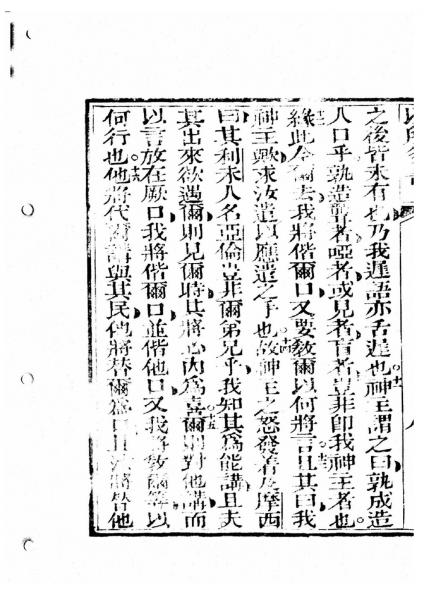 之後皆未有也乃我遲語亦舌遲也十一神主謂之曰孰成造
人口乎孰造聾者啞者或見者盲者豈非卽我神主者也
十二緣此今爾去我將偕爾口又要教爾以何將言十三且其曰我
神主歟求汝遣以應遣之手也十四故神主之怒發着及摩西
曰其利未人名亞倫豈非爾弟兄乎我知其爲能講且夫
其出來欲遇爾則見爾時其將心內爲喜十五爾則對他講而
以言放在厥口我將偕爾口並偕他口又我將教爾等以
何行也十六他將代爾講與其民他將替爾爲口且汝將替他